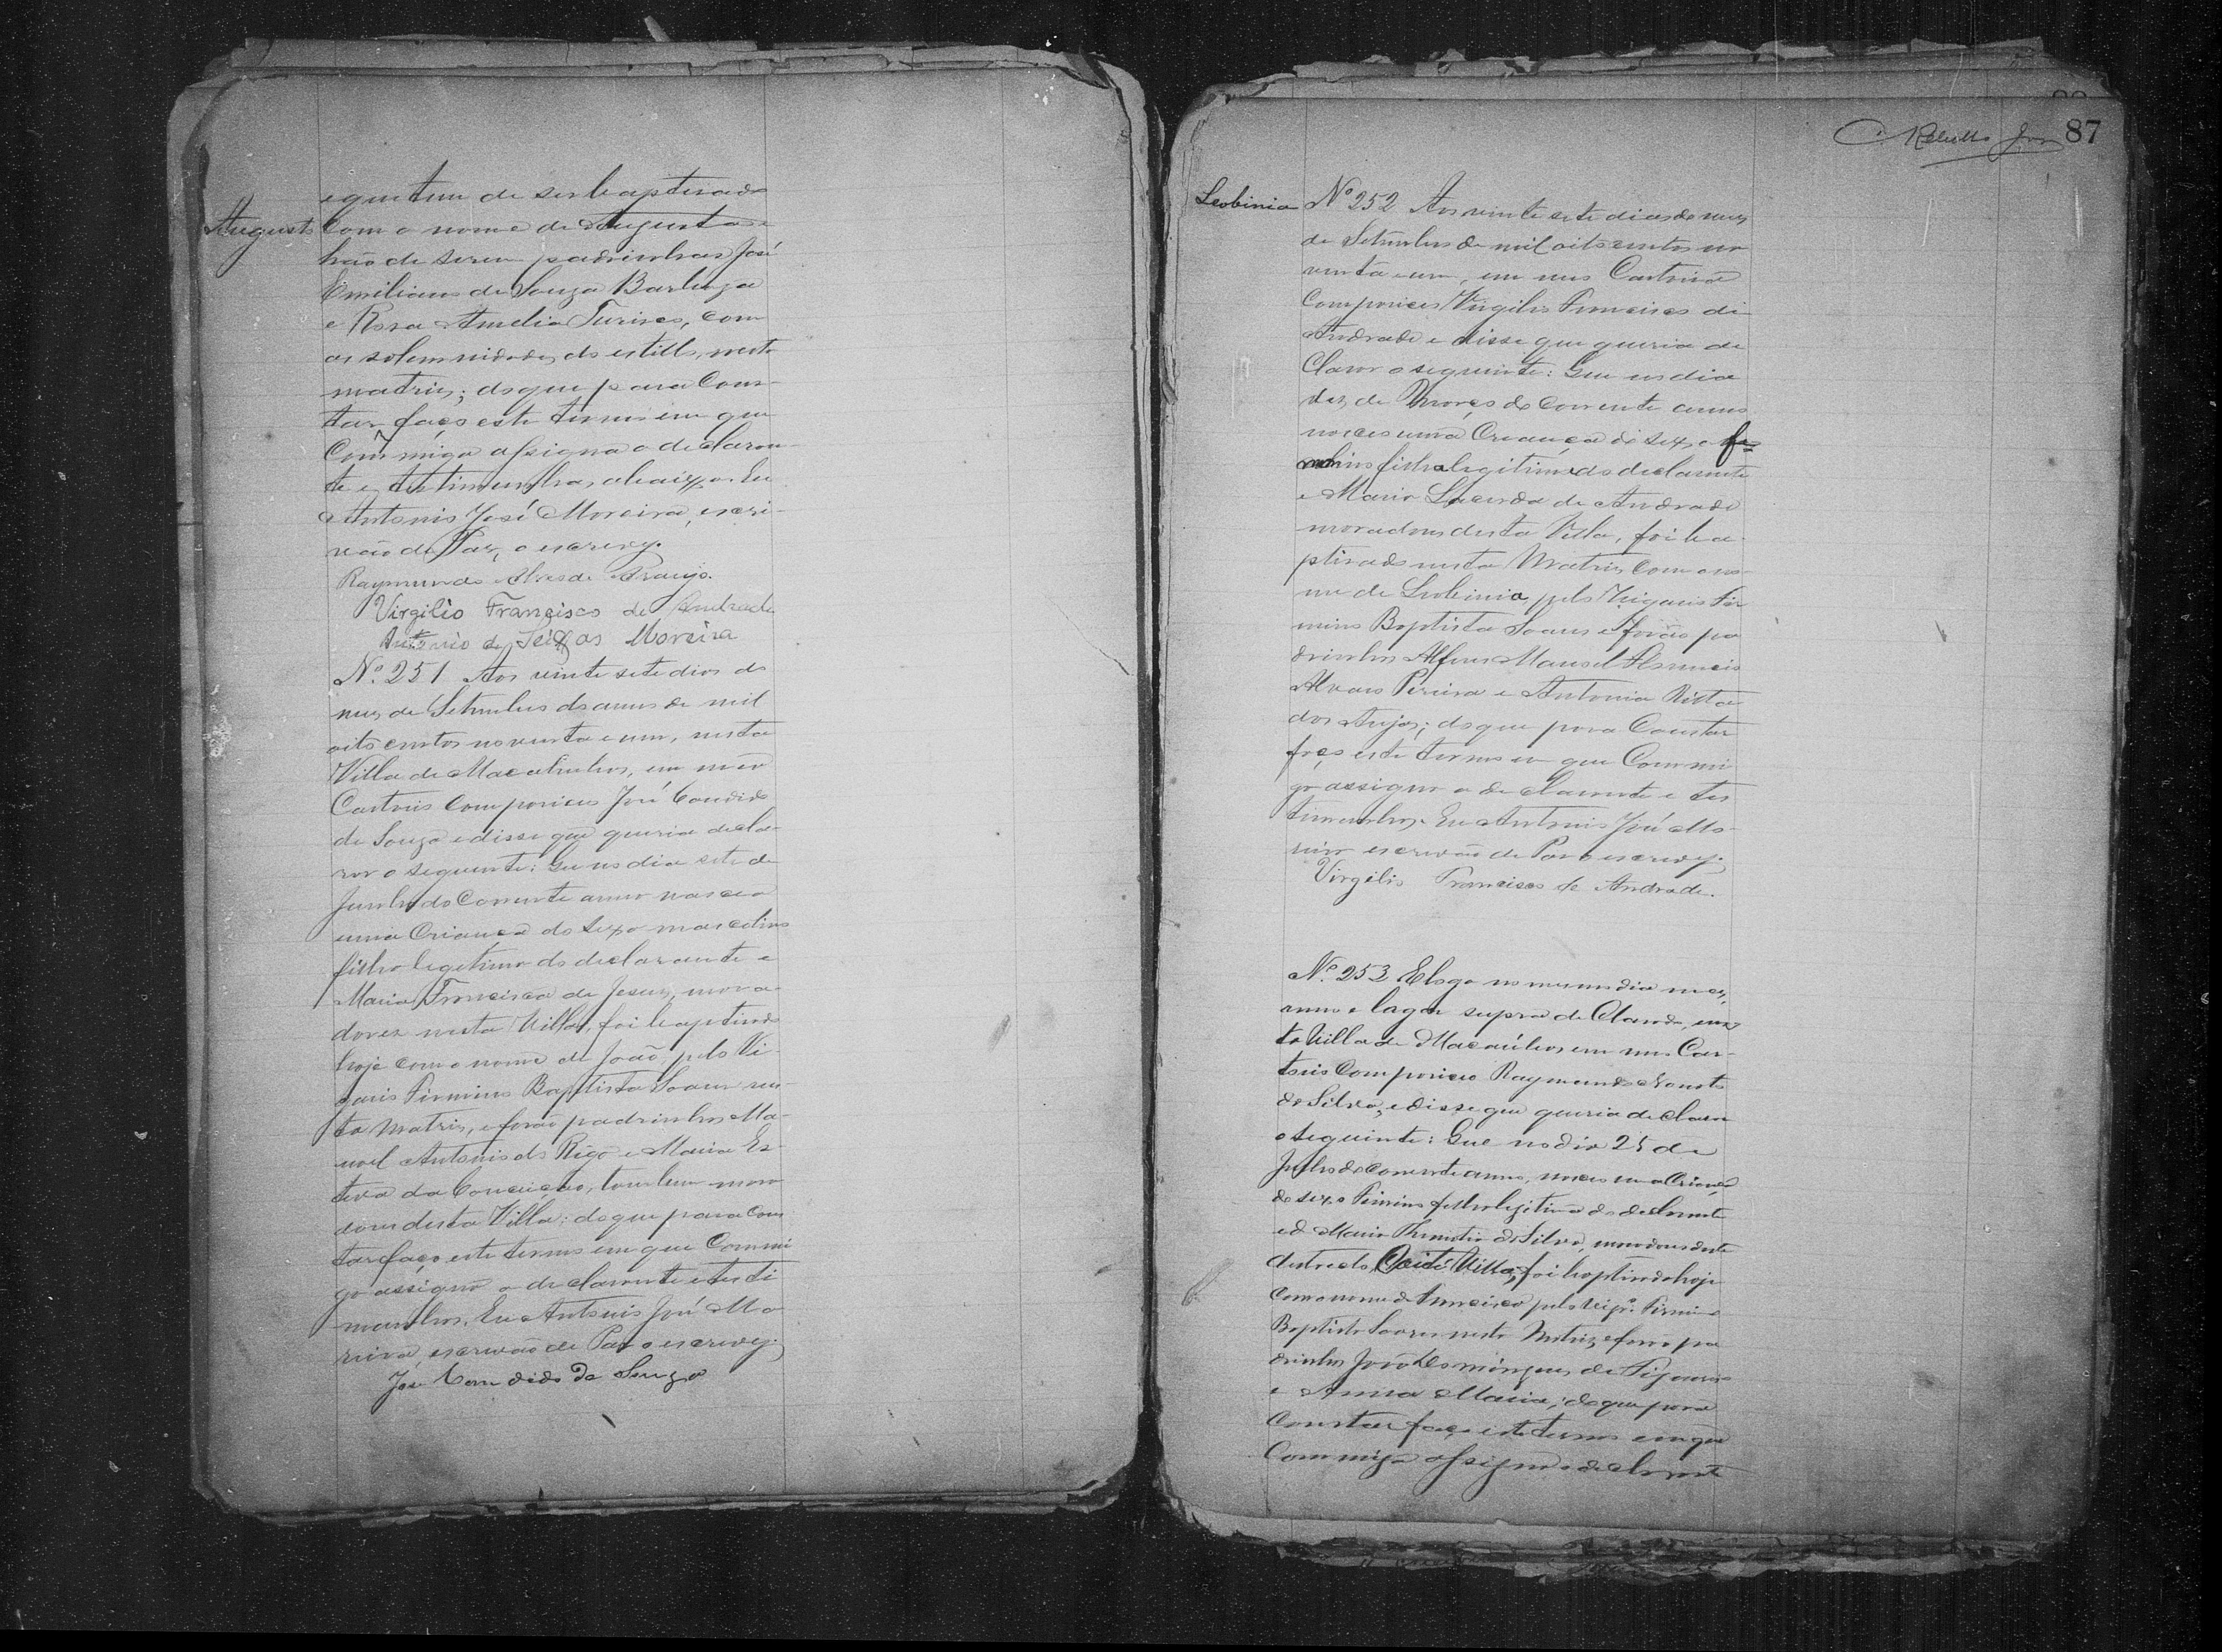 e que tem de ser baptisado
Augusto
com o nome de Augusto e
hão de serem padrinhos José
Emiliano de Souza Barboza
e Rosa Amelia Turires, com
as solemnidades do estillo, nesta
matriz; do que para Cons-
tar faço este termo em que
Commigo assigna o declaran-
te e testimunhas abaixo. Eu
Antonio José Moreira, escri-
vão de Paz, o escrevy.
Raymundo Alves de Araujo.
Virgilio Francisco de Andrade
Antonio de Moreira
Nº. 251 Aos vinte sete dias do
mez de Setembro do anno de mil
oito centos noventa e um, nesta
Villa de Macahubas, em meo
Cartorio Compareceo José Candido
de Souza e disse que queria decla-
rar o seguinte: Que no dia sete de
Junho do Corrente anno nasceo
uma Criança do sexo mascolino
filho legetimo do declarante e
Maria Francisca de Jesus, mora-
dores nesta Villa, foi baptisado
hoje com o nome de João pelo Vi-
gario Firmino Baptista Soares nes-
ta Matriz, e forão padrinhos Ma-
noel Antonio do Rego e Maria Es-
teva da Conceição, tambem mora
dores desta Villa; do que para Cons
tar faço este termo em que Commi
go assigna o declarante e testi
munhas. Eu Antonio José Mo
reira, escrivão de Paz o escrevy.
José Candido de Souza
87
Leobinia
Nº 252 Aos vinte sete dias do mez
de Setembro de mil oito centos no
venta e um, em meo Cartorio
Compareceo Virgilio Francisco de
Andrade e disse que queria de
Clarar o seguinte: Que no dia
dez de Março do Corrente anno
nasceo uma Criança do sexo fe
minino filha legitima do declarante
e Maria Lacerda de Andrade
moradores desta Villa, foi ba
ptisado nesta Matriz com o no-
me de Leobinia, pelo Vigario Fir
mino Baptista Soares e forão pa
drinhos Alferes Manoel Florencio
Alvares Pereira e Antonia Ritta
dos Anjos; do que para Constar
faço este termo em que Commi
go assigna o declarante e tes
timunhas. Eu Antonio José Mo-
reira escrivão de Paz o escrevy.
Virgilio Francisco de Andrade.
Nº. 253 E logo no mesmo dia mez,
anno e lugar supra declarado, nes
ta Villa de Macaúbas em meo Car-
torio Compareceo Raymundo Nonato
da Silva, e disse que queria declarar
o seguinte: Que no dia 25 de
Julho do corrente anno, nasceo uma Criança
do sexo Femino filha legitima do declarante
e de Maria da Silva, moradores deste
destrecto, Villa, foi baptisado hoje
com o nome de Francisca pelo Vigrº. Firmino
Baptista Soares nesta Matriz, e forão pa
drinhos João Domingues de Figueiro
e Anna Maria; do que para
Constar faço este termo em que
Commigo assigna o declarante